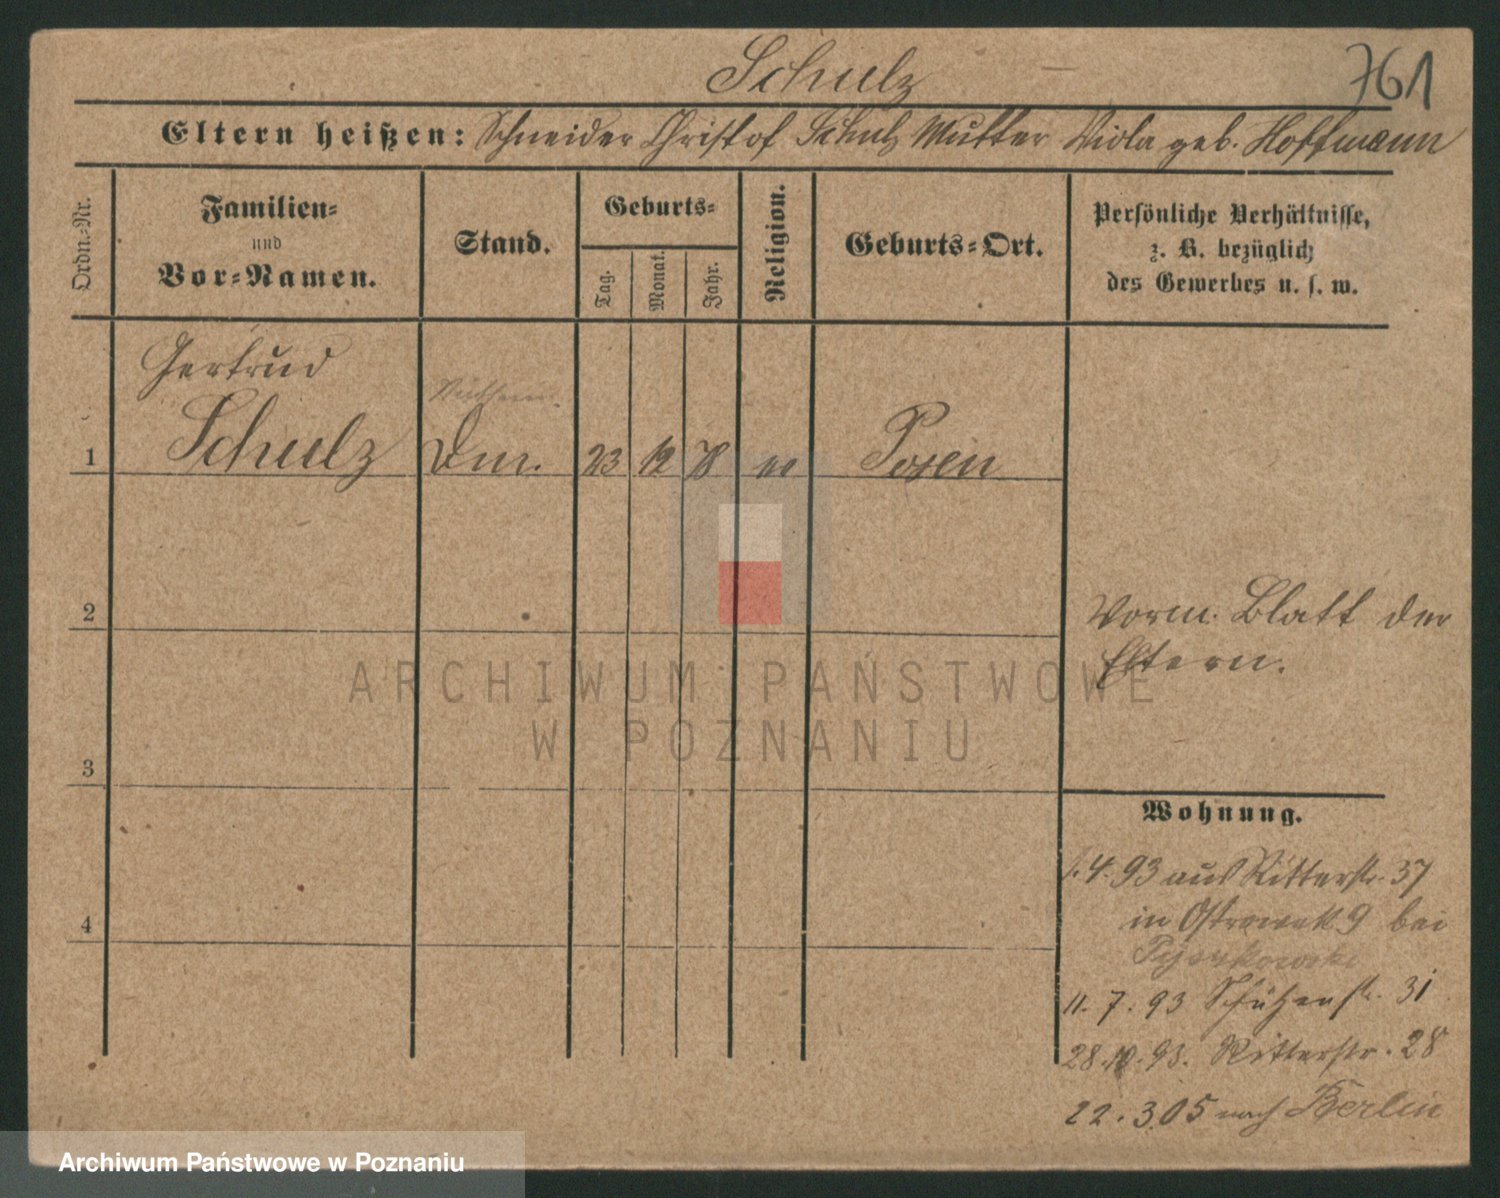 Schulz
761
Eltern heißen: Schneider Christof Schulz Mutter Viola geb. Hoffmann
Ordn.-Nr.
Familien-
und
Vor-Namen.
Stand.
Geburts-
Tag.
Monat.
Jahr.
Religion.
Geburts-Ort.
Persönliche Verhältnisse,
z. B. bezüglich
des Gewerbes u. s. w.
Gertrud
1 Schulz 23 12 78 Posen
2
Vorm. Blatt der
Eltern.
ARCHIWUM PAŃSTWOWE
W POZNANIU
3
Wohnung.
1.4.93 aus Ritterstr. 37
4
in Ostrowek 9 bei
11.7.93 Schützenstr. 31
28.10.93. Ritterstr. 28
22.3.05 nach Berlin
Archiwum Państwowe w Poznaniu